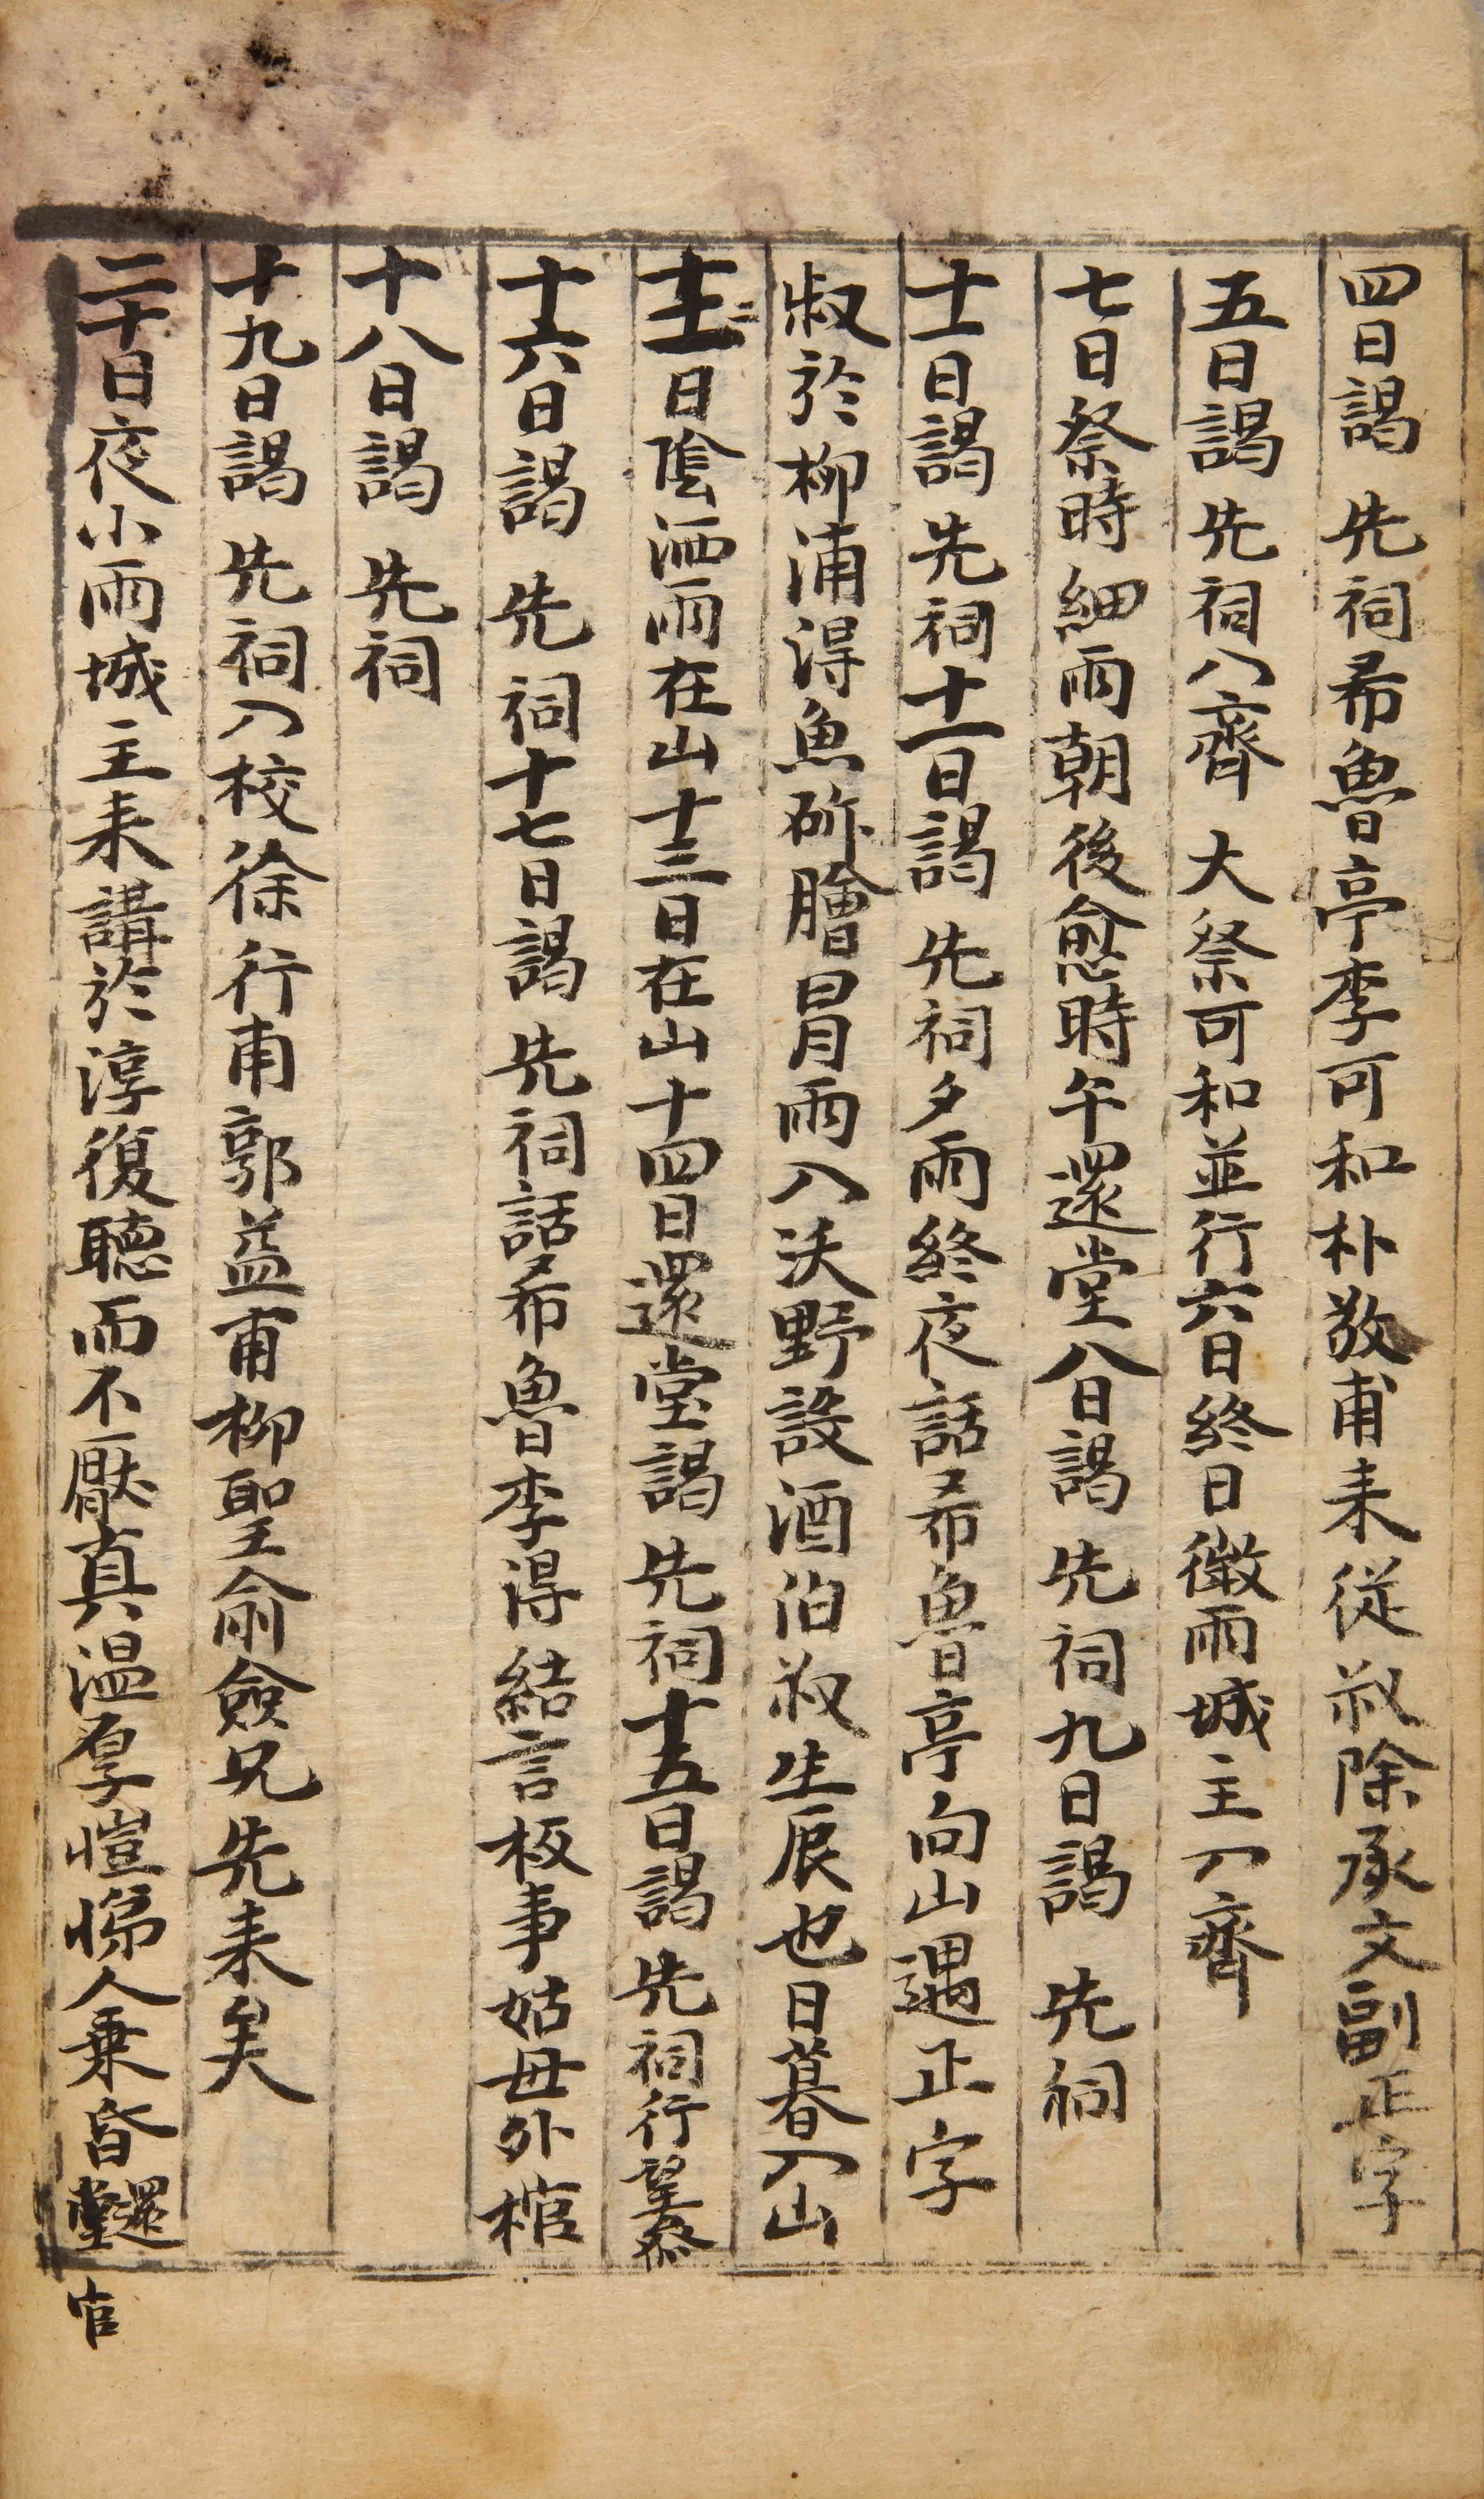 四日謁 先祠希魯亭李可和朴敬甫来從叔除承文副正字
五日謁 先祠入齋 大祭可和並行六日終日微雨城主入齋
七日祭時細雨朝後愈時午還堂八日謁 先祠九日謁 先祠
十日謁 先祠十一日謁 先祠夕雨終夜話希魯亭向山遇正字
叔於柳浦得魚斫膾冒雨入沃野設酒伯叔生辰也日暮入山
十二日陰洒雨在山十三日在山十四日還堂謁 先祠十五日謁 先祠行望祭
十六日謁 先祠十七日謁 先祠話希魯李得結言板事姑母外棺
十八日謁 先祠
十九日謁 先祠入校徐行甫郭益甫柳聖俞僉兄先来矣
二十日夜小雨城主来講於淳復聽而不厭真温厚愷悌人乗昏還堂
官